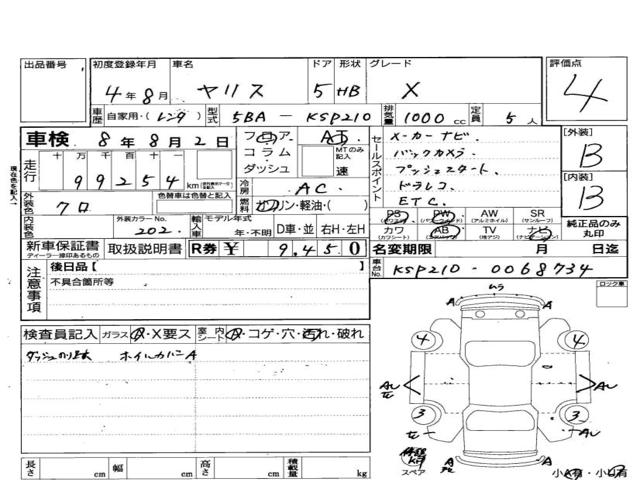 出品番号 初度登録年月 車名 ドア 形状 グレード 評価点
4年8月 ヤリス 5 HB X 4
車歴 自家用・(レンタ) 型式 5BA-KSP210 排気量 1000cc 定員 5人
車検 8年8月2日 フロア コラム ダッシュ AT MTのみ記入 速
走行 十万千百十 99254 km
冷房 AC
セールスポイント
メーカーナビ.
バックカメラ.
プッシュスタート.
ドラレコ.
ETC.
[外装] B
[内装] B
外装色 クロ 色替車は色替と記入 燃料 ガソリン・軽油・( )
内装色 外装カラーNo. 202. 輸入車 モデル年式 年・不明 D車・並 右H・左H
PS (パワーステ) PW (パワーウインド) AW (アルミホイル) SR (サンルーフ)
カワ (カワシート) AB (エアバッグ) TV (純正ジ) ナビ
純正品のみ丸印
新車保証書 ディーラー捺印あるもの 取扱説明書 R券 ¥ 9,450
名変期限 月 日迄
注意事項 後日品【 】
不具合箇所等
車台No. KSP210-0068734
ロック車
検査員記入 ガラス A・X要ス 室内シート A・コゲ・穴・汚れ・破れ
ダッシュのり跡大 ホイルカバーA
ムラ
A A
4 4
AU 左 AU
3 3
左 AU
スペア
A A
小A有・小U有
長さ cm 幅 cm 高さ cm 積載量 kg